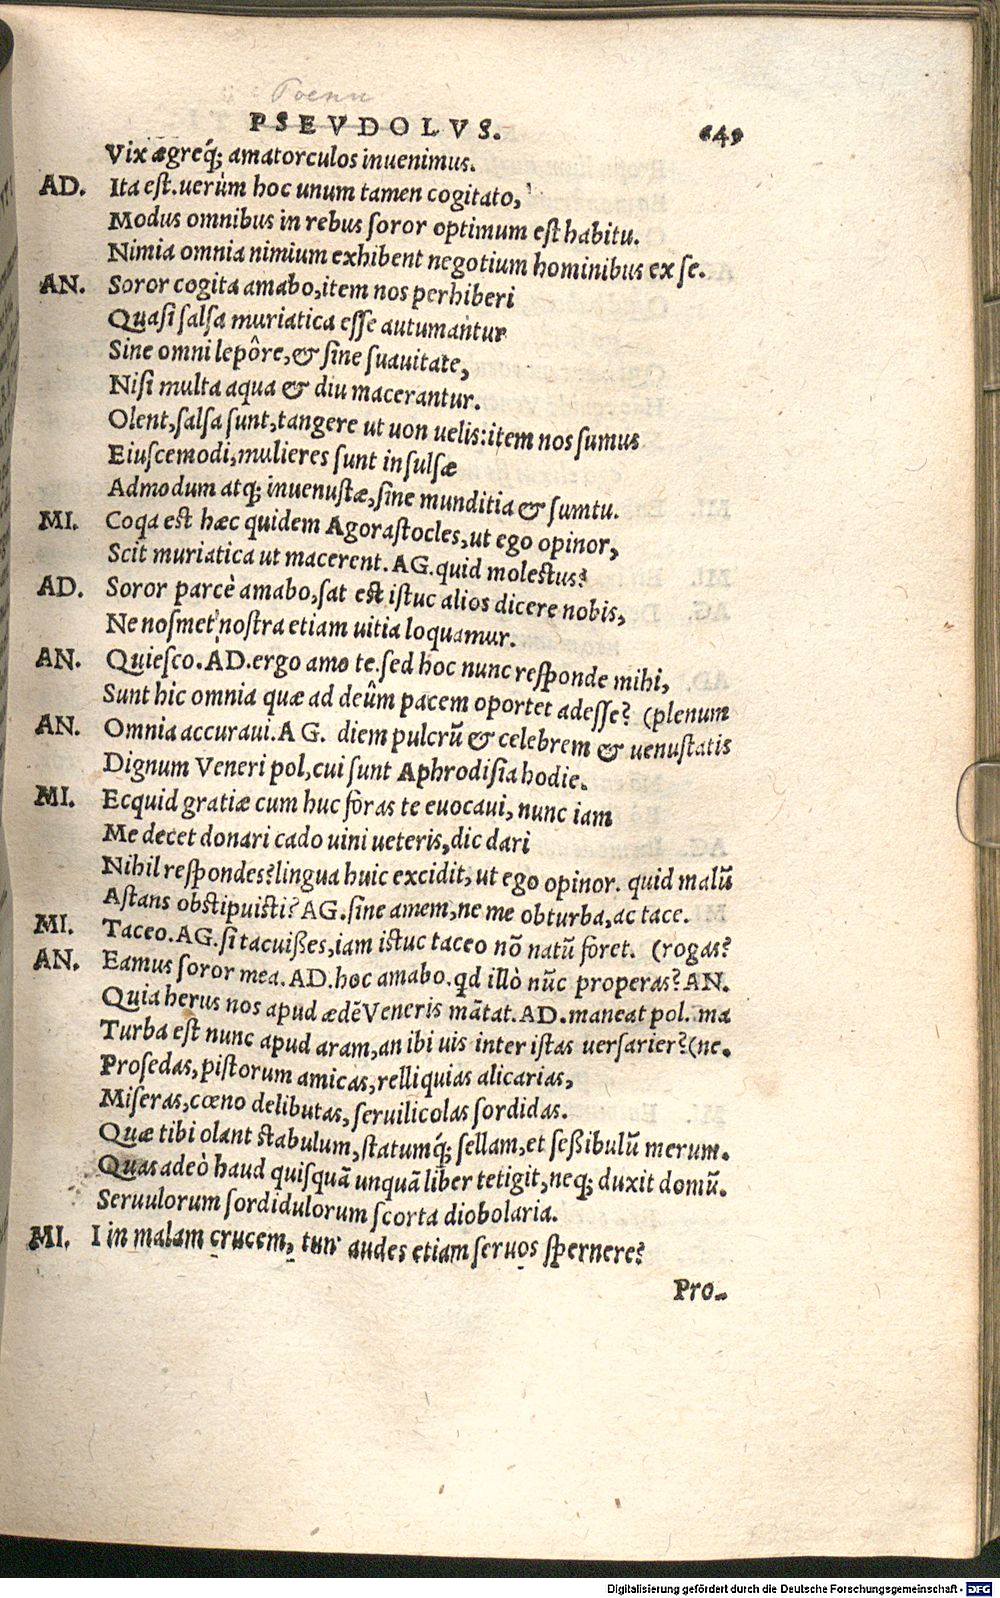 Poenu
PSEVDOLVS. 649
Vix ægreq́; amatorculos inuenimus.
AD. Ita est. uerùm hoc unum tamen cogitato,
Modus omnibus in rebus soror optimum est habitu.
Nimia omnia nimium exhibent negotium hominibus ex se.
AN. Soror cogita amabo, item nos perhiberi
Quasi salsa muriatica esse autumantur
Sine omni lepôre, & sine suauitate,
Nisi multa aqua & diu macerantur.
Olent, salsa sunt, tangere ut uon uelis: item nos sumus
Eiuscemodi, mulieres sunt insulsæ
Admodum atq; inuenustæ, sine munditia & sumtu.
MI. Coqa est hæc quidem Agorastocles, ut ego opinor,
Scit muriatica ut macerent. AG. quid molestus?
AD. Soror parcè amabo, sat est istuc alios dicere nobis,
Ne nosmet nostra etiam uitia loquamur.
AN. Quiesco. AD. ergo amo te. sed hoc nunc responde mihi,
Sunt hic omnia quæ ad deûm pacem oportet adesse? (plenum
AN. Omnia accuraui. AG. diem pulcrũ & celebrem & uenustatis
Dignum Veneri pol, cui sunt Aphrodisia hodie.
MI. Ecquid gratiæ cum huc foras te euocaui, nunc iam
Me decet donari cado uini ueteris, dic dari
Nihil respondes? lingua huic excidit, ut ego opinor. quid malũ
Astans obstipuisti? AG. sine amem, ne me obturba, ac tace.
MI. Taceo. AG. si tacuißes, iam istuc taceo nõ natũ foret. (rogas?
AN. Eamus soror mea. AD. hoc amabo. qd illò nũc properas? AN.
Quia herus nos apud ædẽ Veneris mãtat. AD. maneat pol. ma
Turba est nunc apud aram, an ibi uis inter istas uersarier? (ne.
Prosedas, pistorum amicas, relliquias alicarias,
Miseras, cœno delibutas, seruilicolas sordidas.
Quæ tibi olant stabulum, statumq́; sellam, et seßibulũ merum.
Quas adeò haud quisquã unquã liber tetigit, neq; duxit domũ.
Seruulorum sordidulorum scorta diobolaria.
MI. I in malam crucem, tun' audes etiam seruos spernere?
Pro-
Digitalisierung gefördert durch die Deutsche Forschungsgemeinschaft - DFG